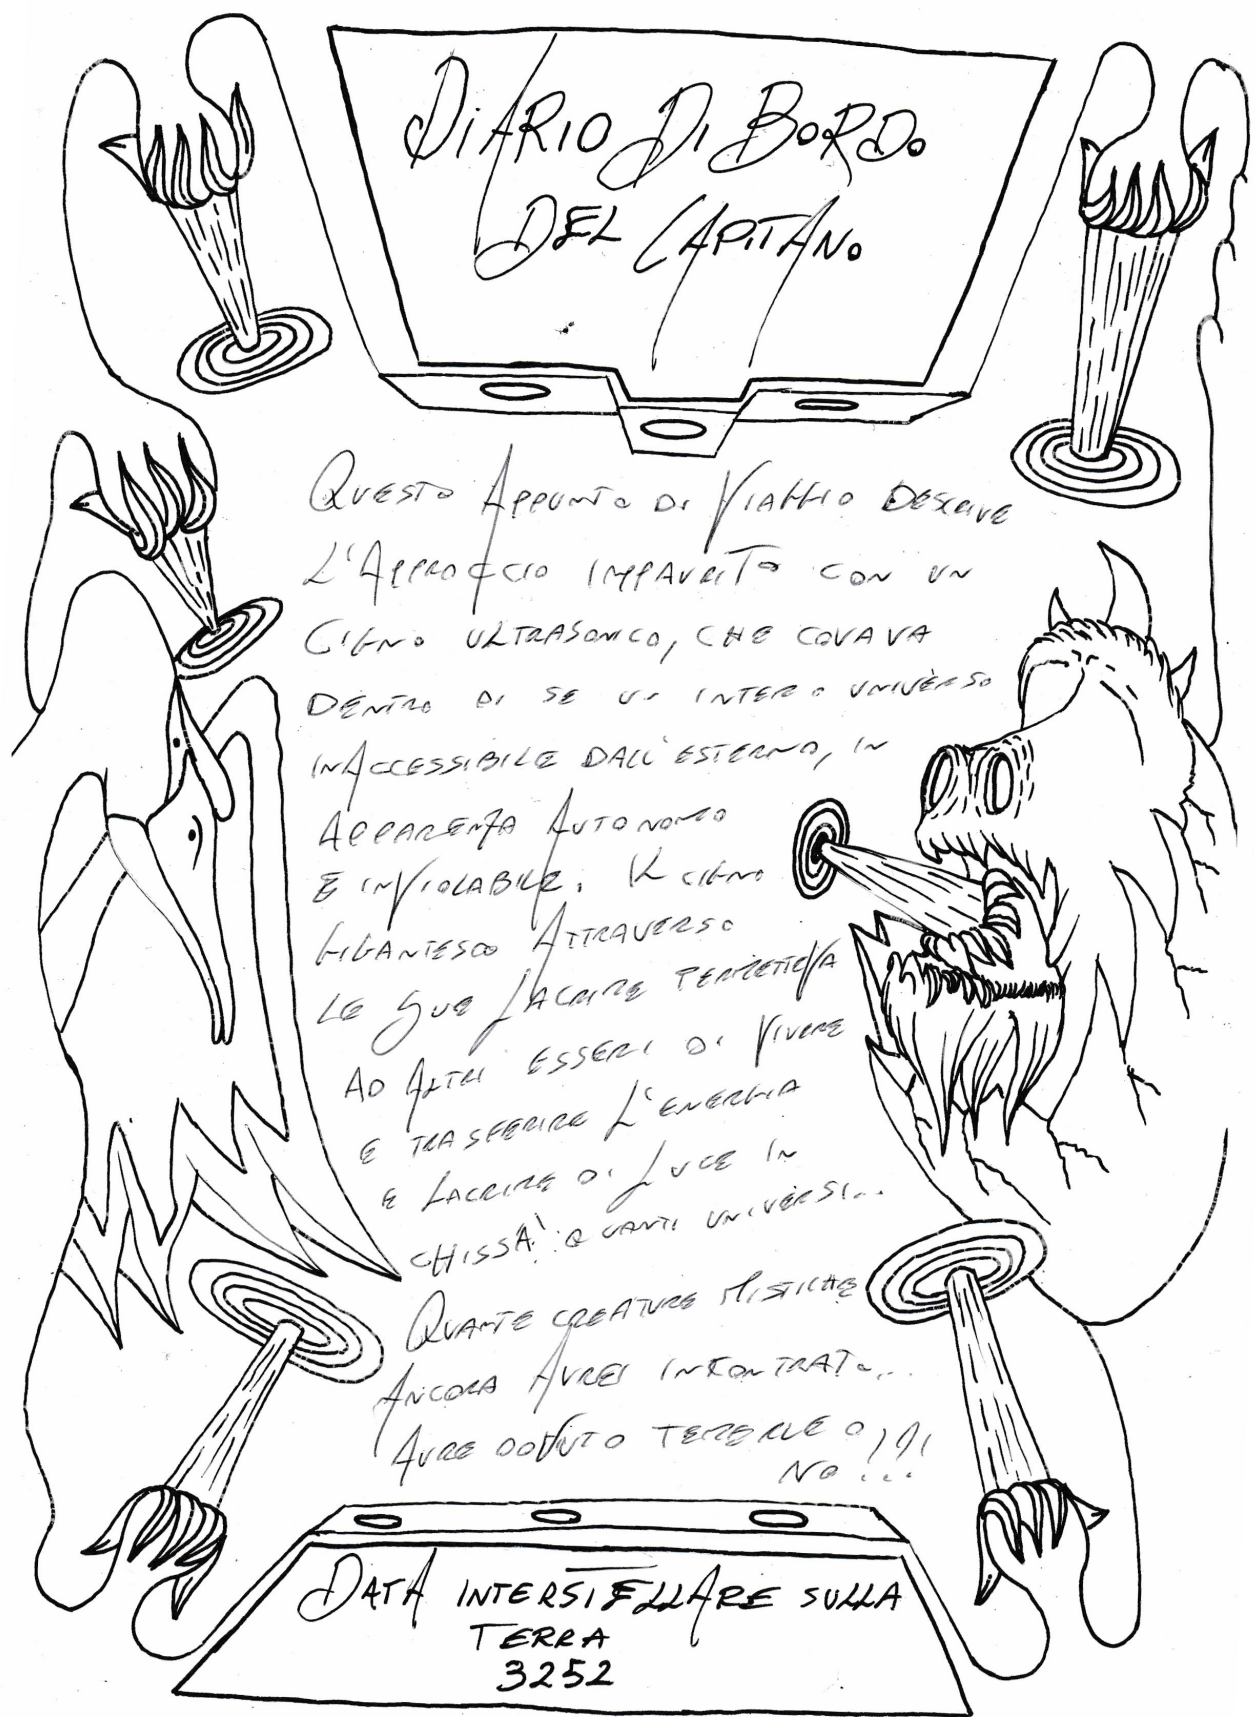 DIARIO DI BORDO
DEL CAPITANO
QUESTO APPUNTO DI VIAGGIO DESCRIVE
L'APPROCCIO IMPAURITO CON UN
CIGNO ULTRASONICO, CHE COVAVA
DENTRO DI SE UN INTERO UNIVERSO
INACCESSIBILE DALL'ESTERNO, IN
APPARENZA AUTONOMO
E INVIOLABILE. IL CIGNO
GIGANTESCO ATTRAVERSO
LE SUE LACRIME PERMETTEVA
AD ALTRI ESSERI DI VIVERE
E TRASFERIRE L'ENERGIA
E LACRIME DI LUCE IN
CHISSÀ QUANTI UNIVERSI...
QUANTE CREATURE MISTICHE
ANCORA AVREI INCONTRATO...
AVREI DOVUTO TEMERLE O
NO!!!
DATA INTERSTELLARE SULLA
TERRA
3252